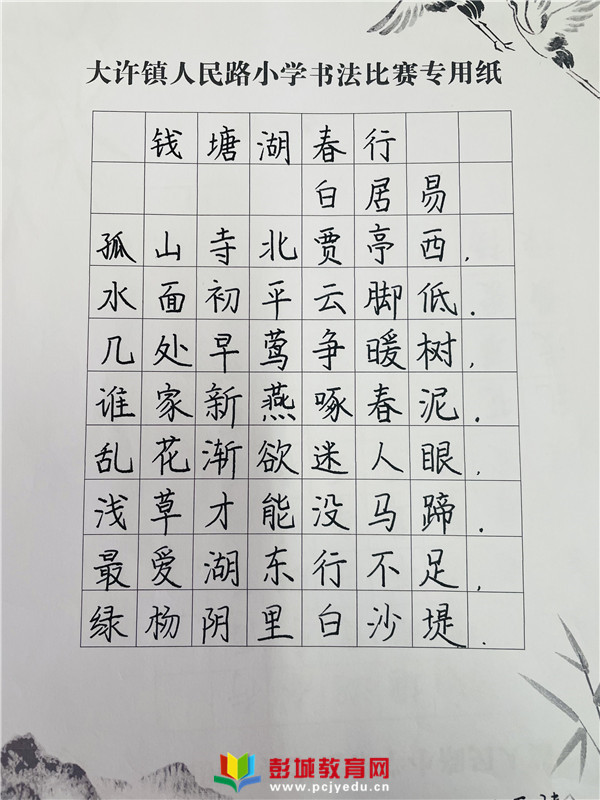 大许镇人民路小学书法比赛专用纸
钱塘湖春行
白居易
孤山寺北贾亭西,
水面初平云脚低.
几处早莺争暖树,
谁家新燕啄春泥.
乱花渐欲迷人眼,
浅草才能没马蹄.
最爱湖东行不足,
绿杨阴里白沙堤.
彭城教育网
www.pcjyedu.cn